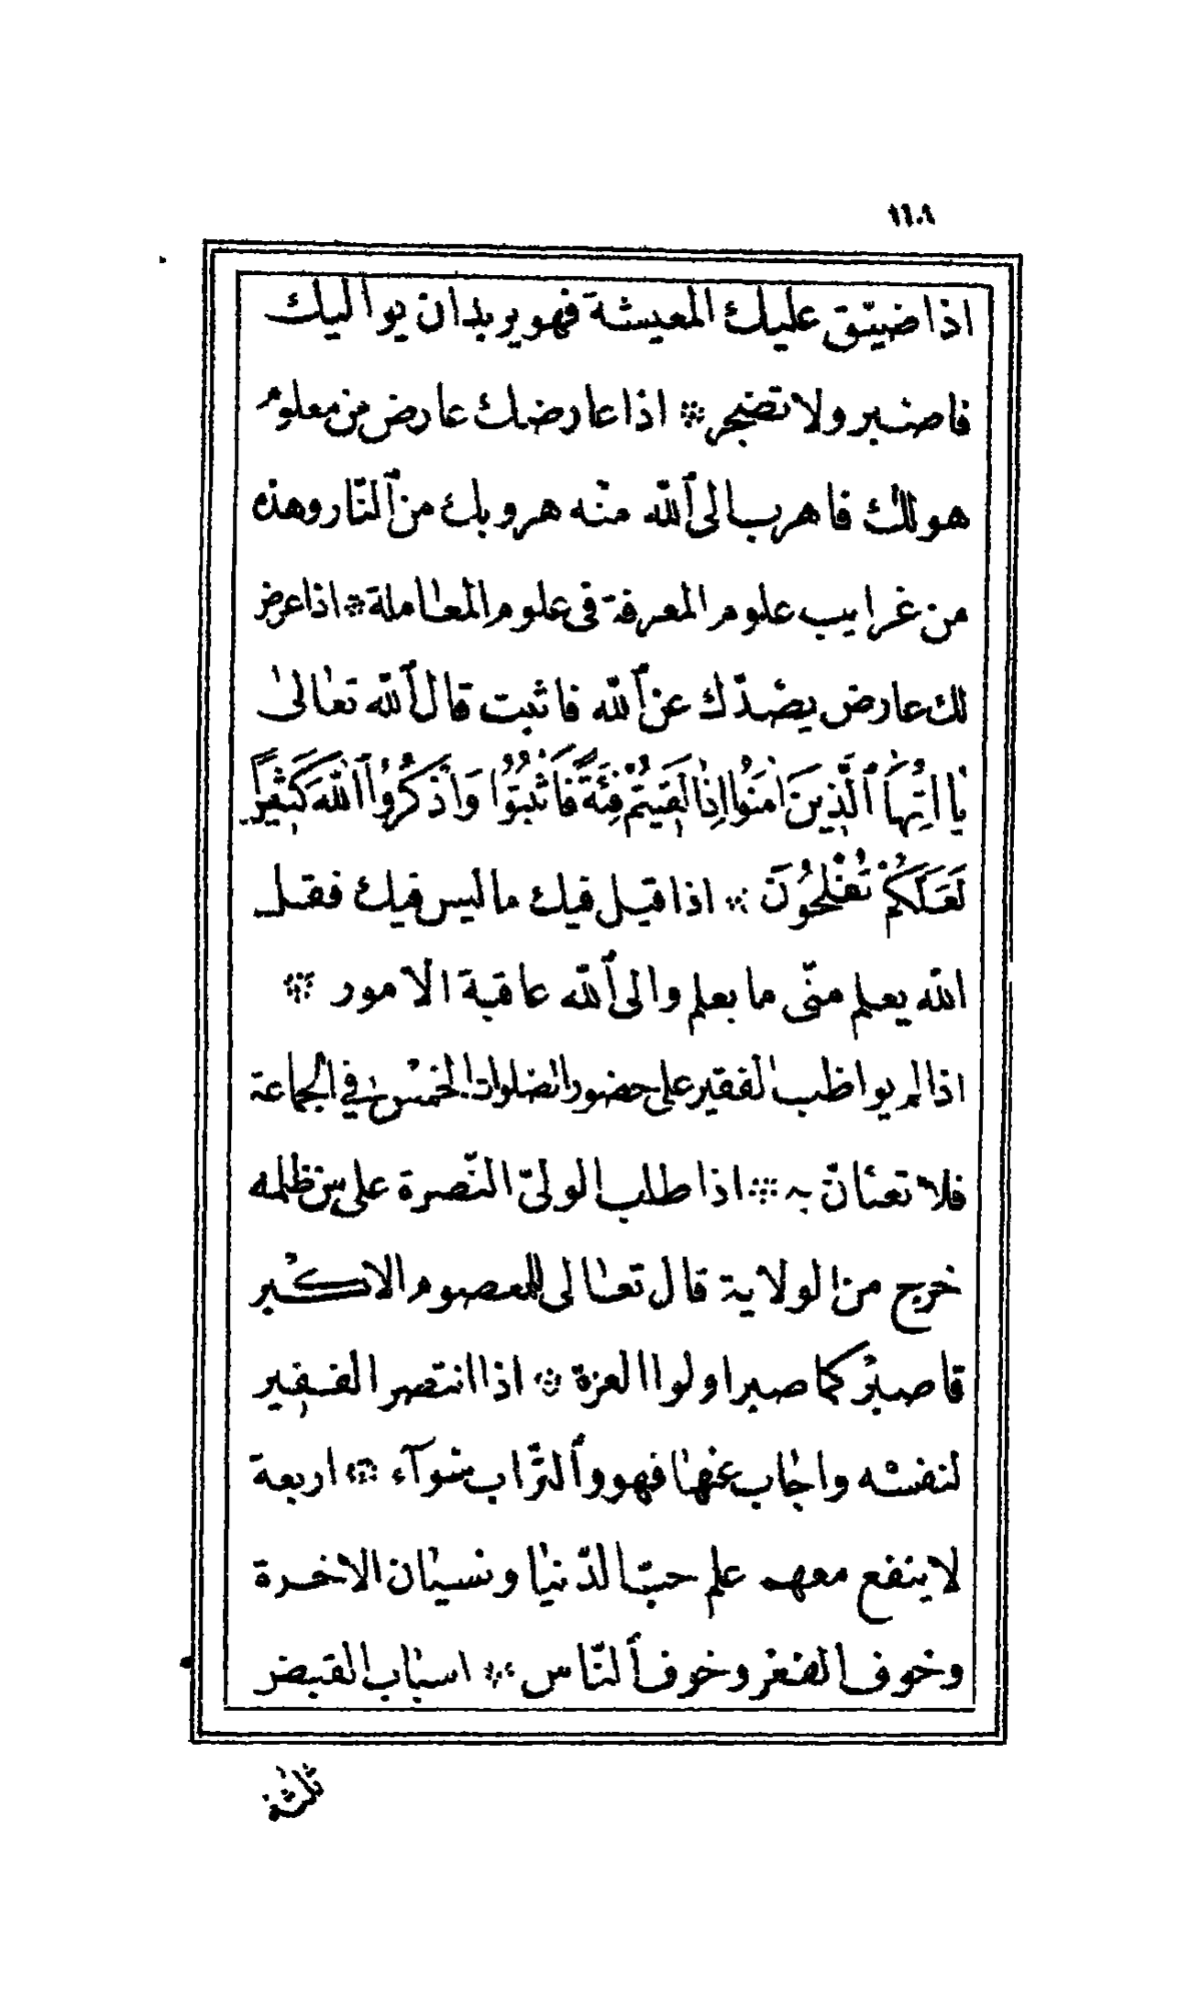 اذا ضيّق عليك المعيشة فهو يريد ان يواليك
فاصبر ولا تضجر ۞ اذا عارضك عارض من معلوم
هو لك فاهرب الى ٱللّه منه هروبك من ٱلنّار وهذه
من غرايب علوم المعرفة فى علوم المعاملة ۞ اذا عرض
لك عارض يصدّك عن ٱللّه فاثبت قال ٱللّه تعالىٰ
يٰا اَيُّهَا ٱلَّذِينَ اٰمَنُوا اِذٰا لَقِيتُمْ فِئَةً فَاثْبُتُوا وَاذْكُرُوا ٱللّٰهَ كَثٖيراً
لَعَلَّكُمْ تُفْلِحُونَ ۞ اذا قيل فيك ما ليس فيك فقل
اللّه يعلم منّى ما يعلم والى ٱللّه عاقبة الامور ۞
اذا لم يواظب الفقير على حضور الصلوات الخمس فى الجماعة
فلا تعبأنّ به ۞ اذا طلب الولىّ النّصرة على من ظلمه
خرج من الولاية قال تعالى للمعصوم الاكبر
فاصبر كما صبر اولوا العزة ۞ اذا انتصر الفقير
لنفسه واجاب عنها فهو وٱلتّراب سوآء ۞ اربعة
لا ينفع معهم علم حبّ الدّنيا ونسيان الاخرة
وخوف الفقر وخوف ٱلنّاس ۞ اسباب القبض
ثلثة